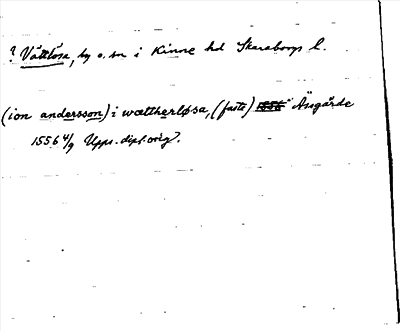 ? Vättlösa, by o. sn i Kinne hd Skaraborgs l.
(ion andersson) i wættherløsa, (faste) i Åsgårde
1556 4/9 Upps. dipl. orig.